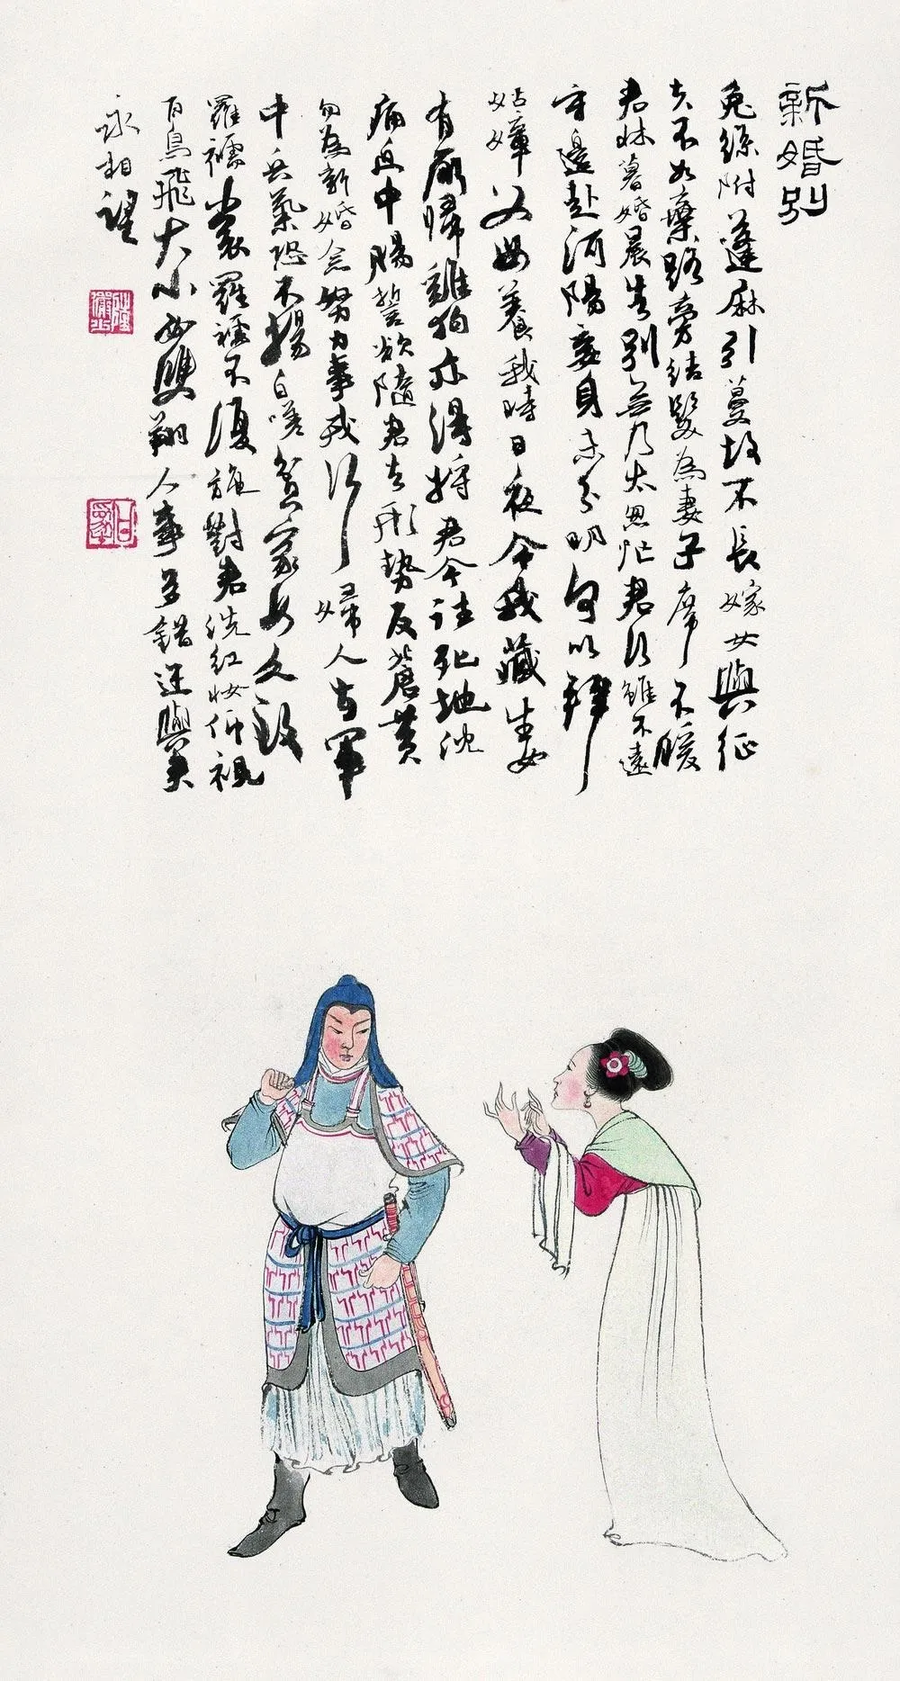 新婚別
兔絲附蓬麻引蔓故不長嫁女與征
夫不如棄路旁結髮為妻子席不暖
君牀暮婚晨告別無乃太怱忙君行雖不遠
守邊赴河陽妾身未分明何以拜
姑嫜父母養我時日夜令我藏生女
有所歸雞狗亦得將君今往死地沈
痛迫中腸誓欲隨君去形勢反蒼黃
勿為新婚念努力事戎行婦人在軍
中兵氣恐不揚自嗟貧家女久致
羅襦裳羅襦不復施對君洗紅妝仰視
百鳥飛大小必雙翔人事多錯迕與君
永相望
陸儼少